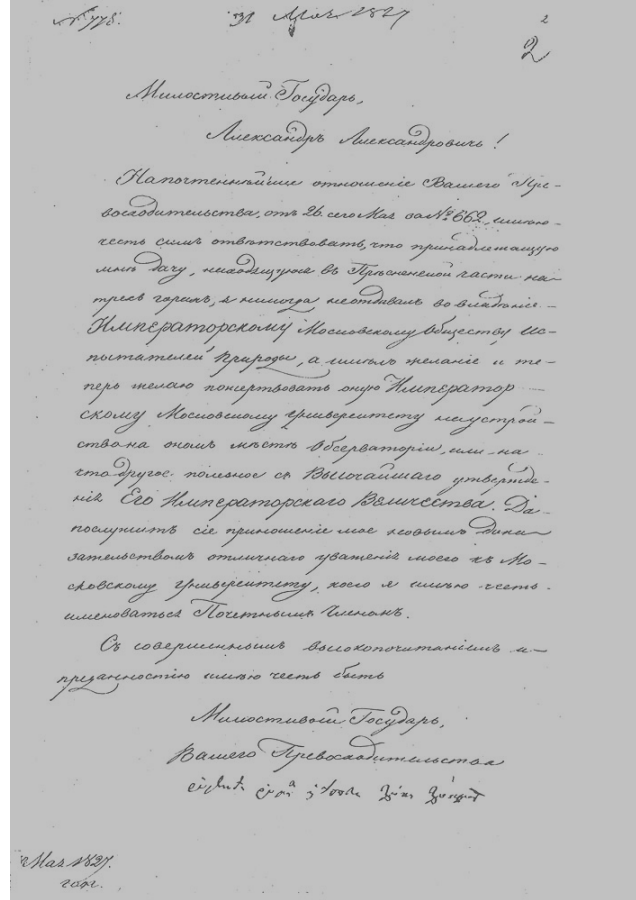 № 775.
31 Мая 1827
2
2
Милостивый Государь,
Александръ Александровичь!
На почтеннѣйшее отношеніе Вашего Пре-
восходительства, отъ 26 сего Мая за № 662, имѣю
честь симъ отвѣтствовать, что принадлежащую
мнѣ дачу, находящуюся въ Прѣсненской части на
трехъ горахъ, я никогда неотдавалъ во владѣніе
Императорскому Московскому Обществу Ис-
пытателей Природы, а имѣлъ желаніе и те-
перь желаю пожертвовать оную Император-
скому Московскому Университету на устрой-
ство на ономъ мѣстѣ Обсерваторіи, или на
что другое полезное съ Высочайшаго утвержде-
нія Его Императорскаго Величества. Да
послужитъ сіе приношеніе мое новымъ дока-
зательствомъ отличнаго уваженія моего къ Мо-
сковскому Университету, коего я имѣю честь
именоваться Почетнымъ Членомъ.
Съ совершеннымъ высокопочитаніемъ и
преданностію имѣю честь быть
Милостивый Государь,
Вашего Превосходительства
Мая 1827.
года.